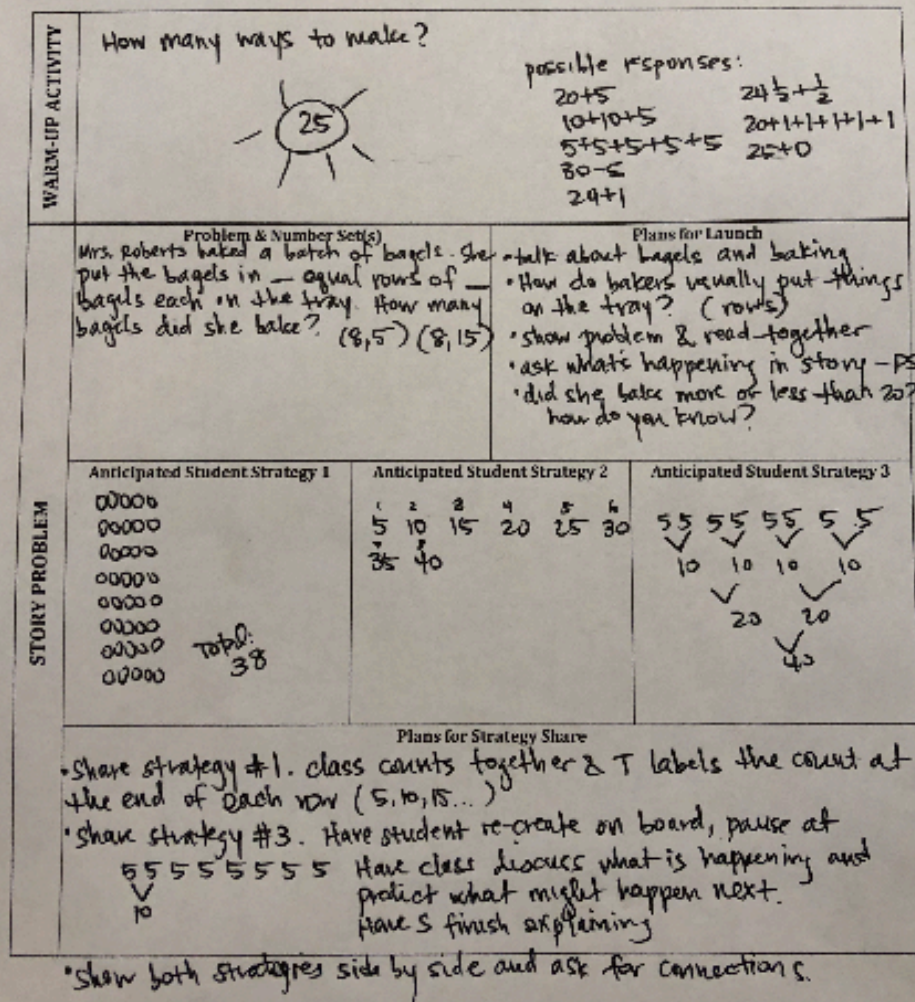 WARM-UP ACTIVITY
How many ways to make?
25
possible responses:
20+5
10+10+5
5+5+5+5+5
30-5
24+1
24 1/2 + 1/2
20+1+1+1+1+1
25+0
STORY PROBLEM
Problem & Number Set(s)
Mrs. Roberts baked a batch of bagels. She
put the bagels in _ equal rows of _
bagels each on the tray. How many
bagels did she bake? (8,5) (8,15)
Plans for Launch
• talk about bagels and baking
• How do bakers usually put things
on the tray? (rows)
• show problem & read together
• ask what's happening in story - PS
• did she bake more or less than 20?
how do you know?
Anticipated Student Strategy 1
Total:
38
Anticipated Student Strategy 2
1 2 3 4 5 6
5 10 15 20 25 30
35 40
Anticipated Student Strategy 3
5 5 5 5 5 5 5 5
10 10 10 10
20 20
40
Plans for Strategy Share
• Share strategy #1. class counts together & T labels the count at
the end of each row (5, 10, 15...)
• Share strategy #3. Have student re-create on board, pause at
5 5 5 5 5 5 5 5 Have class discuss what is happening and
10 predict what might happen next.
Have S finish explaining
• Show both strategies side by side and ask for connections.